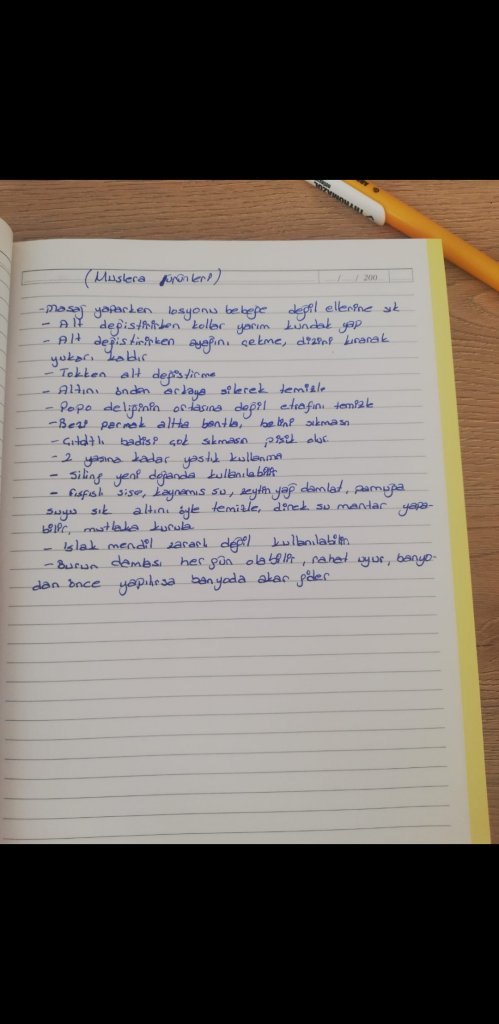 (Mustera ürünleri)
/ / 200
- masaj yaparken losyonu bebeğe değil ellerine sık
- Alt değiştirirken kollar yarım kundak yap
- Alt değiştirirken ayağını çekme, dizini kırarak
yukarı kaldır
- Tokken alt değiştirme
- Altını önden arkaya silerek temizle
- Popo deliğinin ortasına değil etrafını temizle
- Bezi parmak altta bantla, belini sıkmasın
- Çıtçıtlı badisi çok sıkmasın pişik olur
- 2 yaşına kadar yastık kullanma
- Siling yeni doğanda kullanılabilir
- Fısfıslı şişe, kaynamış su, zeytin yağ damlat, pamuğa
suyu sık altını öyle temizle, direk su mantar yapa-
bilir, mutlaka kurula
- Islak mendil zararlı değil kullanılabilir
- Burun damlası her gün olabilir, rahat uyur, banyo-
dan önce yapılırsa banyoda akar gider